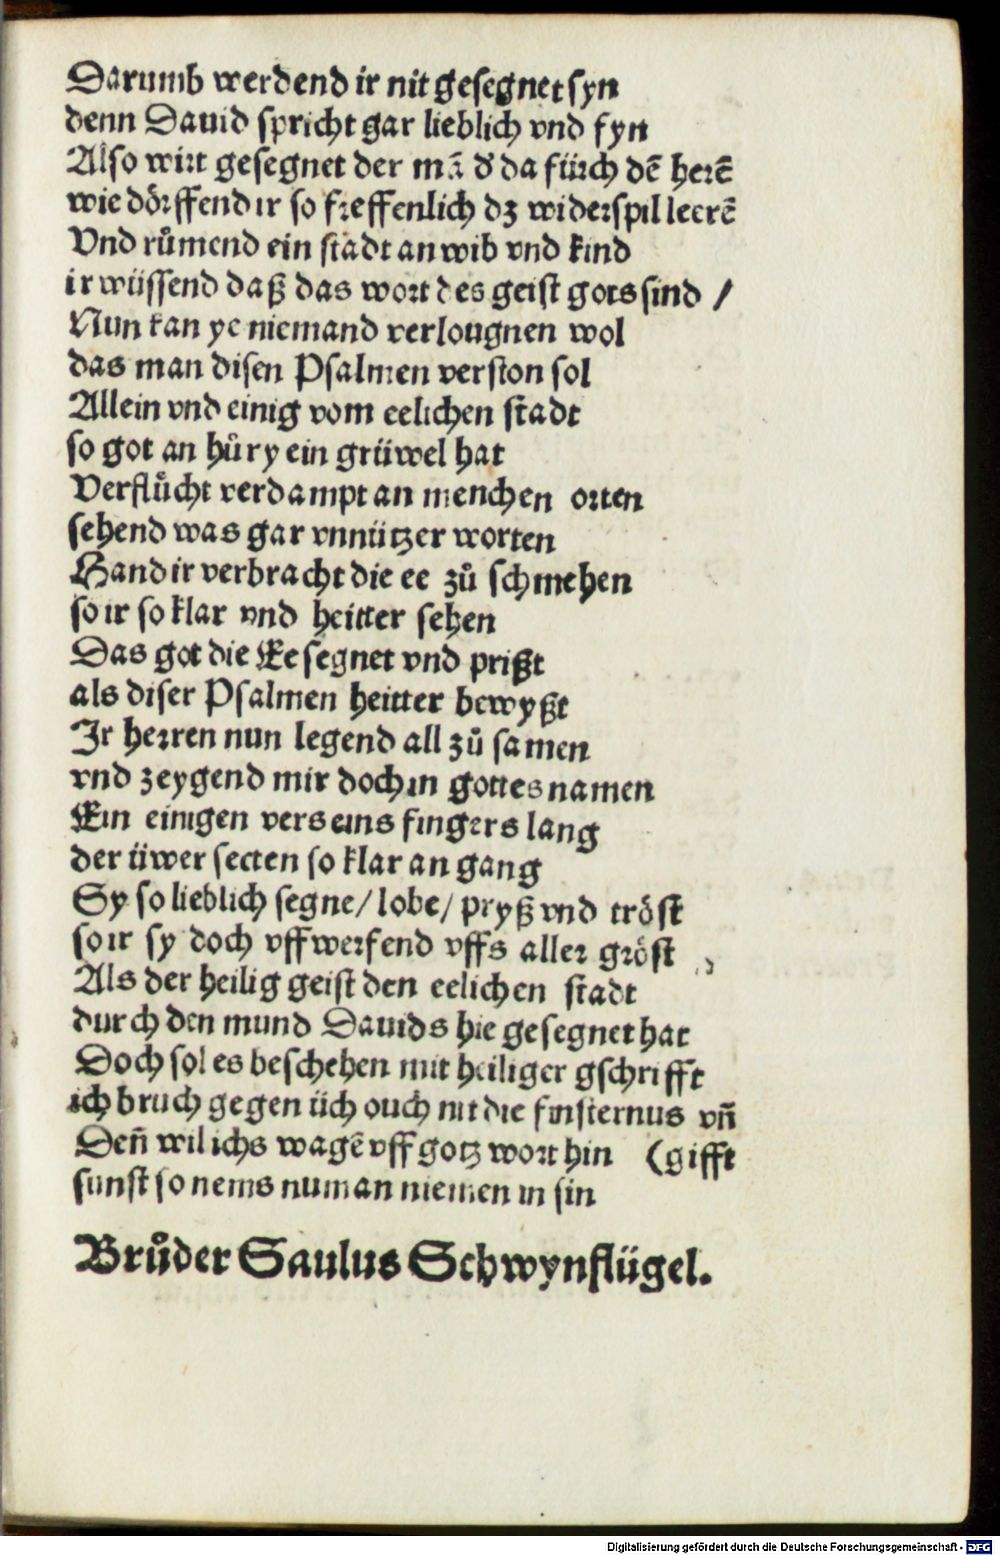 Darumb werdend ir nit gesegnet syn
denn Dauid spricht gar lieblich vnd fyn
Also wirt gesegnet der mā d̕ da fürch dē herē
wie dörffend ir so freffenlich dz widerspil leerē
Vnd růmend ein stadt an wib vnd kind
ir wüssend daß das wort des geist gots sind /
Nun kan ye niemand verlougnen wol
das man disen Psalmen verston sol
Allein vnd einig vom eelichen stadt
so got an hůry ein grüwel hat
Verflůcht verdampt an menchen orten
sehend was gar vnnützer worten
Hand ir verbracht die ee zů schmehen
so ir so klar vnd heitter sehen
Das got die Ee segnet vnd prißt
als diser Psalmen heitter bewyßt
Ir herren nun legend all zů samen
vnd zeygend mir doch in gottes namen
Ein einigen vers eins fingers lang
der üwer secten so klar an gang
Sy so lieblich segne/ lobe/ pryß vnd tröst
so ir sy doch vffwerfend vffs aller gröst
Als der heilig geist den eelichen stadt
durch den mund Dauids hie gesegnet hat
Doch sol es beschehen mit heiliger gschrifft
ich bruch gegen üch ouch nit die finsternus vn̄
Den̄ wil ichs wagē vff gotz wort hin (gifft
sunst so nems numan niemen in sin
Brůder Saulus Schwynflügel.
Digitalisierung gefördert durch die Deutsche Forschungsgemeinschaft - DFG